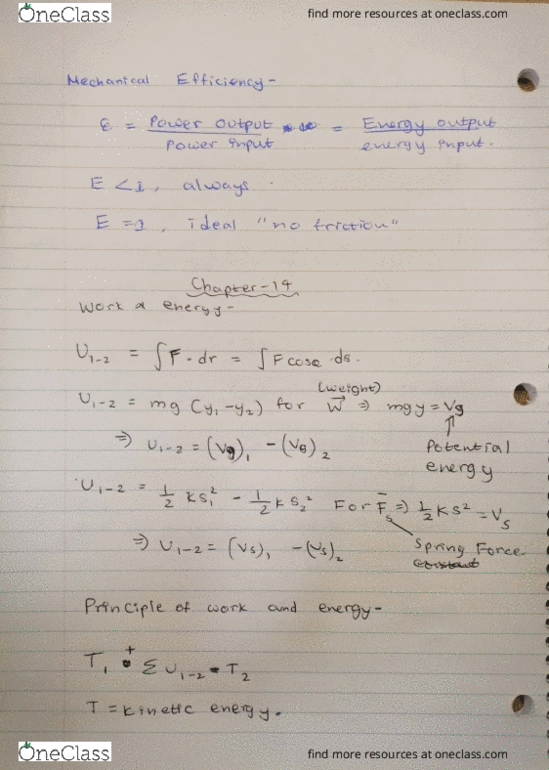 OneClass
find more resources at oneclass.com
Mechanical Efficiency-
ε = Power output = Energy output
power input energy input.
E < 1, always.
E = 1, ideal "no friction"
Chapter-14
Work & energy-
U1-2 = ∫F·dr = ∫Fcosθ ds.
(weight)
U1-2 = mg (y1-y2) for W ⇒ mgy = Vg
⇒ U1-2 = (Vg)1 - (Vg)2
Potential
energy
U1-2 = 1/2 ks1² - 1/2 ks2² For Fs ⇒ 1/2 ks² = Vs
⇒ U1-2 = (Vs)1 - (Vs)2
Spring Force
constant
Principle of work and energy-
T1 + ΣU1-2 = T2
T = kinetic energy.
OneClass
find more resources at oneclass.com